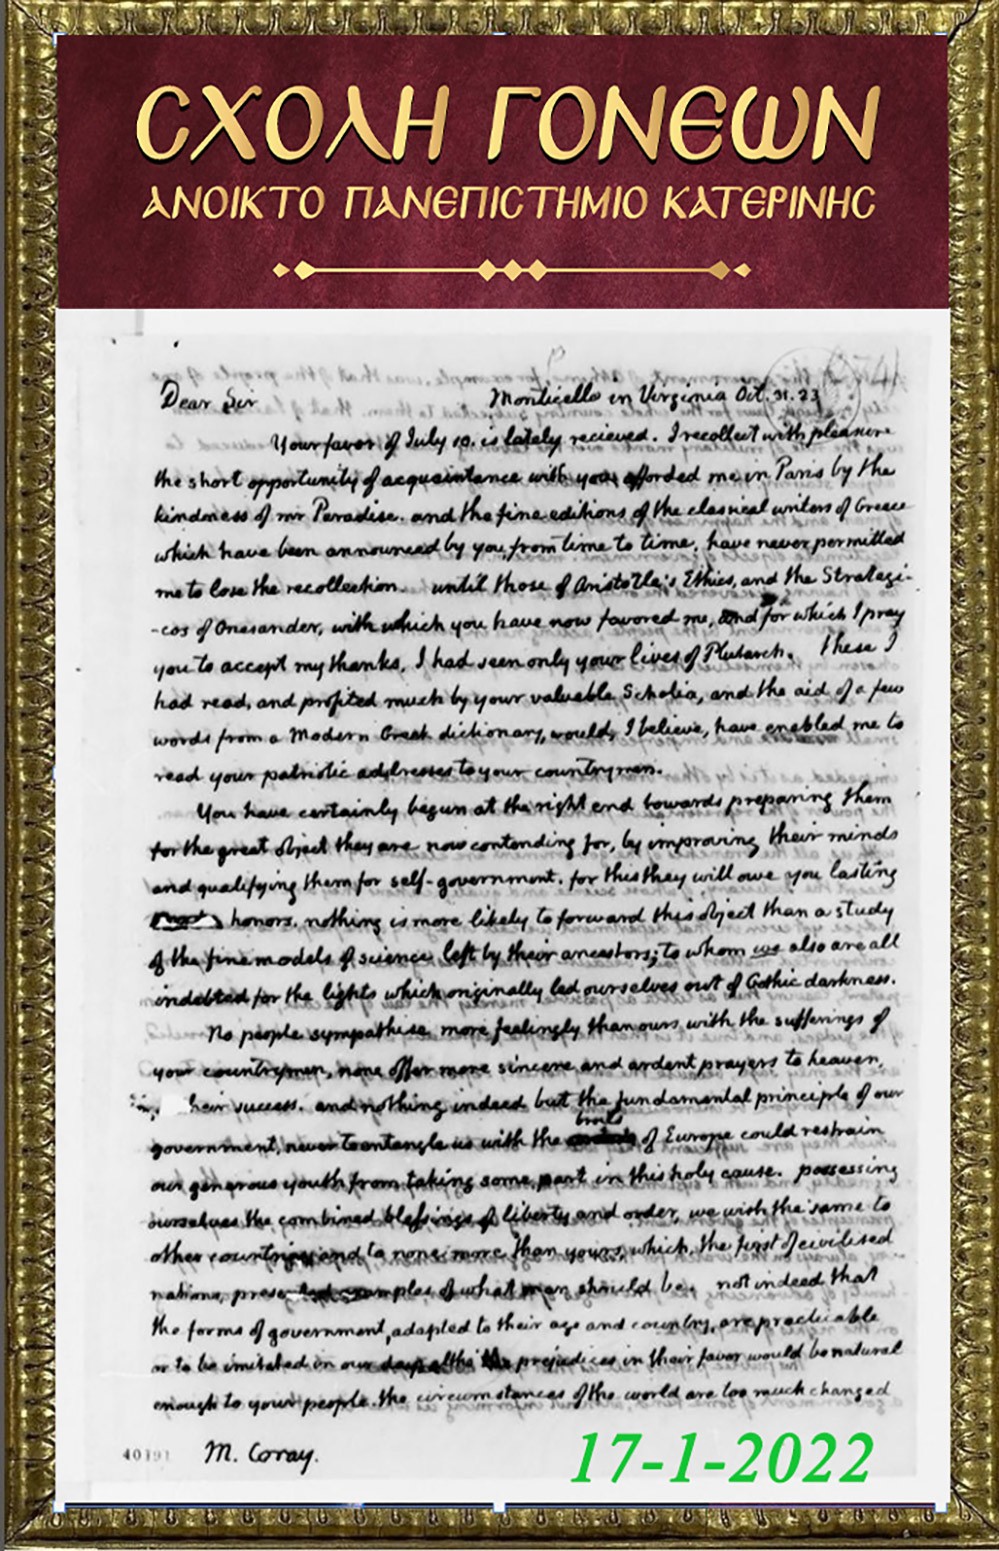 ΣΧΟΛΗ ΓΟΝΕΩΝ
ΑΝΟΙΚΤΟ ΠΑΝΕΠΙΣΤΗΜΙΟ ΚΑΤΕΡΙΝΗΣ
Dear Sir Monticello in Virginia Oct. 31. 23
Your favor of July 10. is lately recieved. I recollect with pleasure
the short opportunity of acquaintance with you afforded me in Paris by the
kindness of mr Paradise. and the fine editions of the classical writers of Greece
which have been announced by you, from time to time, have never permitted
me to lose the recollection. until those of Aristotle's Ethics, and the Strategi-
-cos of Onesander, with which you have now favored me, and for which I pray
you to accept my thanks, I had seen only your lives of Plutarch. These I
had read, and profited much by your valuable Scholia, and the aid of a few
words from a Modern Greek dictionary, would, I believe, have enabled me to
read your patriotic addresses to your countrymen.
You have certainly begun at the right end towards preparing them
for the great object they are now contending for, by improving their minds
and qualifying them for self-government. for this they will owe you lasting
honors. nothing is more likely to forward this object than a study
of the fine models of science left by their ancestors; to whom we also are all
indebted for the lights which originally led ourselves out of Gothic darkness.
No people sympathise more feelingly than ours with the sufferings of
your countrymen, none offer more sincere and ardent prayers to heaven
heir success. and nothing indeed but the fundamental principle of our
government, never to entangle us with the broils of Europe could restrain
our generous youth from taking some part in this holy cause. possessing
ourselves the combined blessings of liberty and order, we wish the same to
other countries, and to none more than yours, which, the first of civilised
nations, examples of what man should be. not indeed that
the forms of government, adapted to their age and country, are practicable
or to be imitated in our day, altho' prejudices in their favor would be natural
enough to your people. the circumstances of the world are too much changed
40191 M. Coray.
17-1-2022